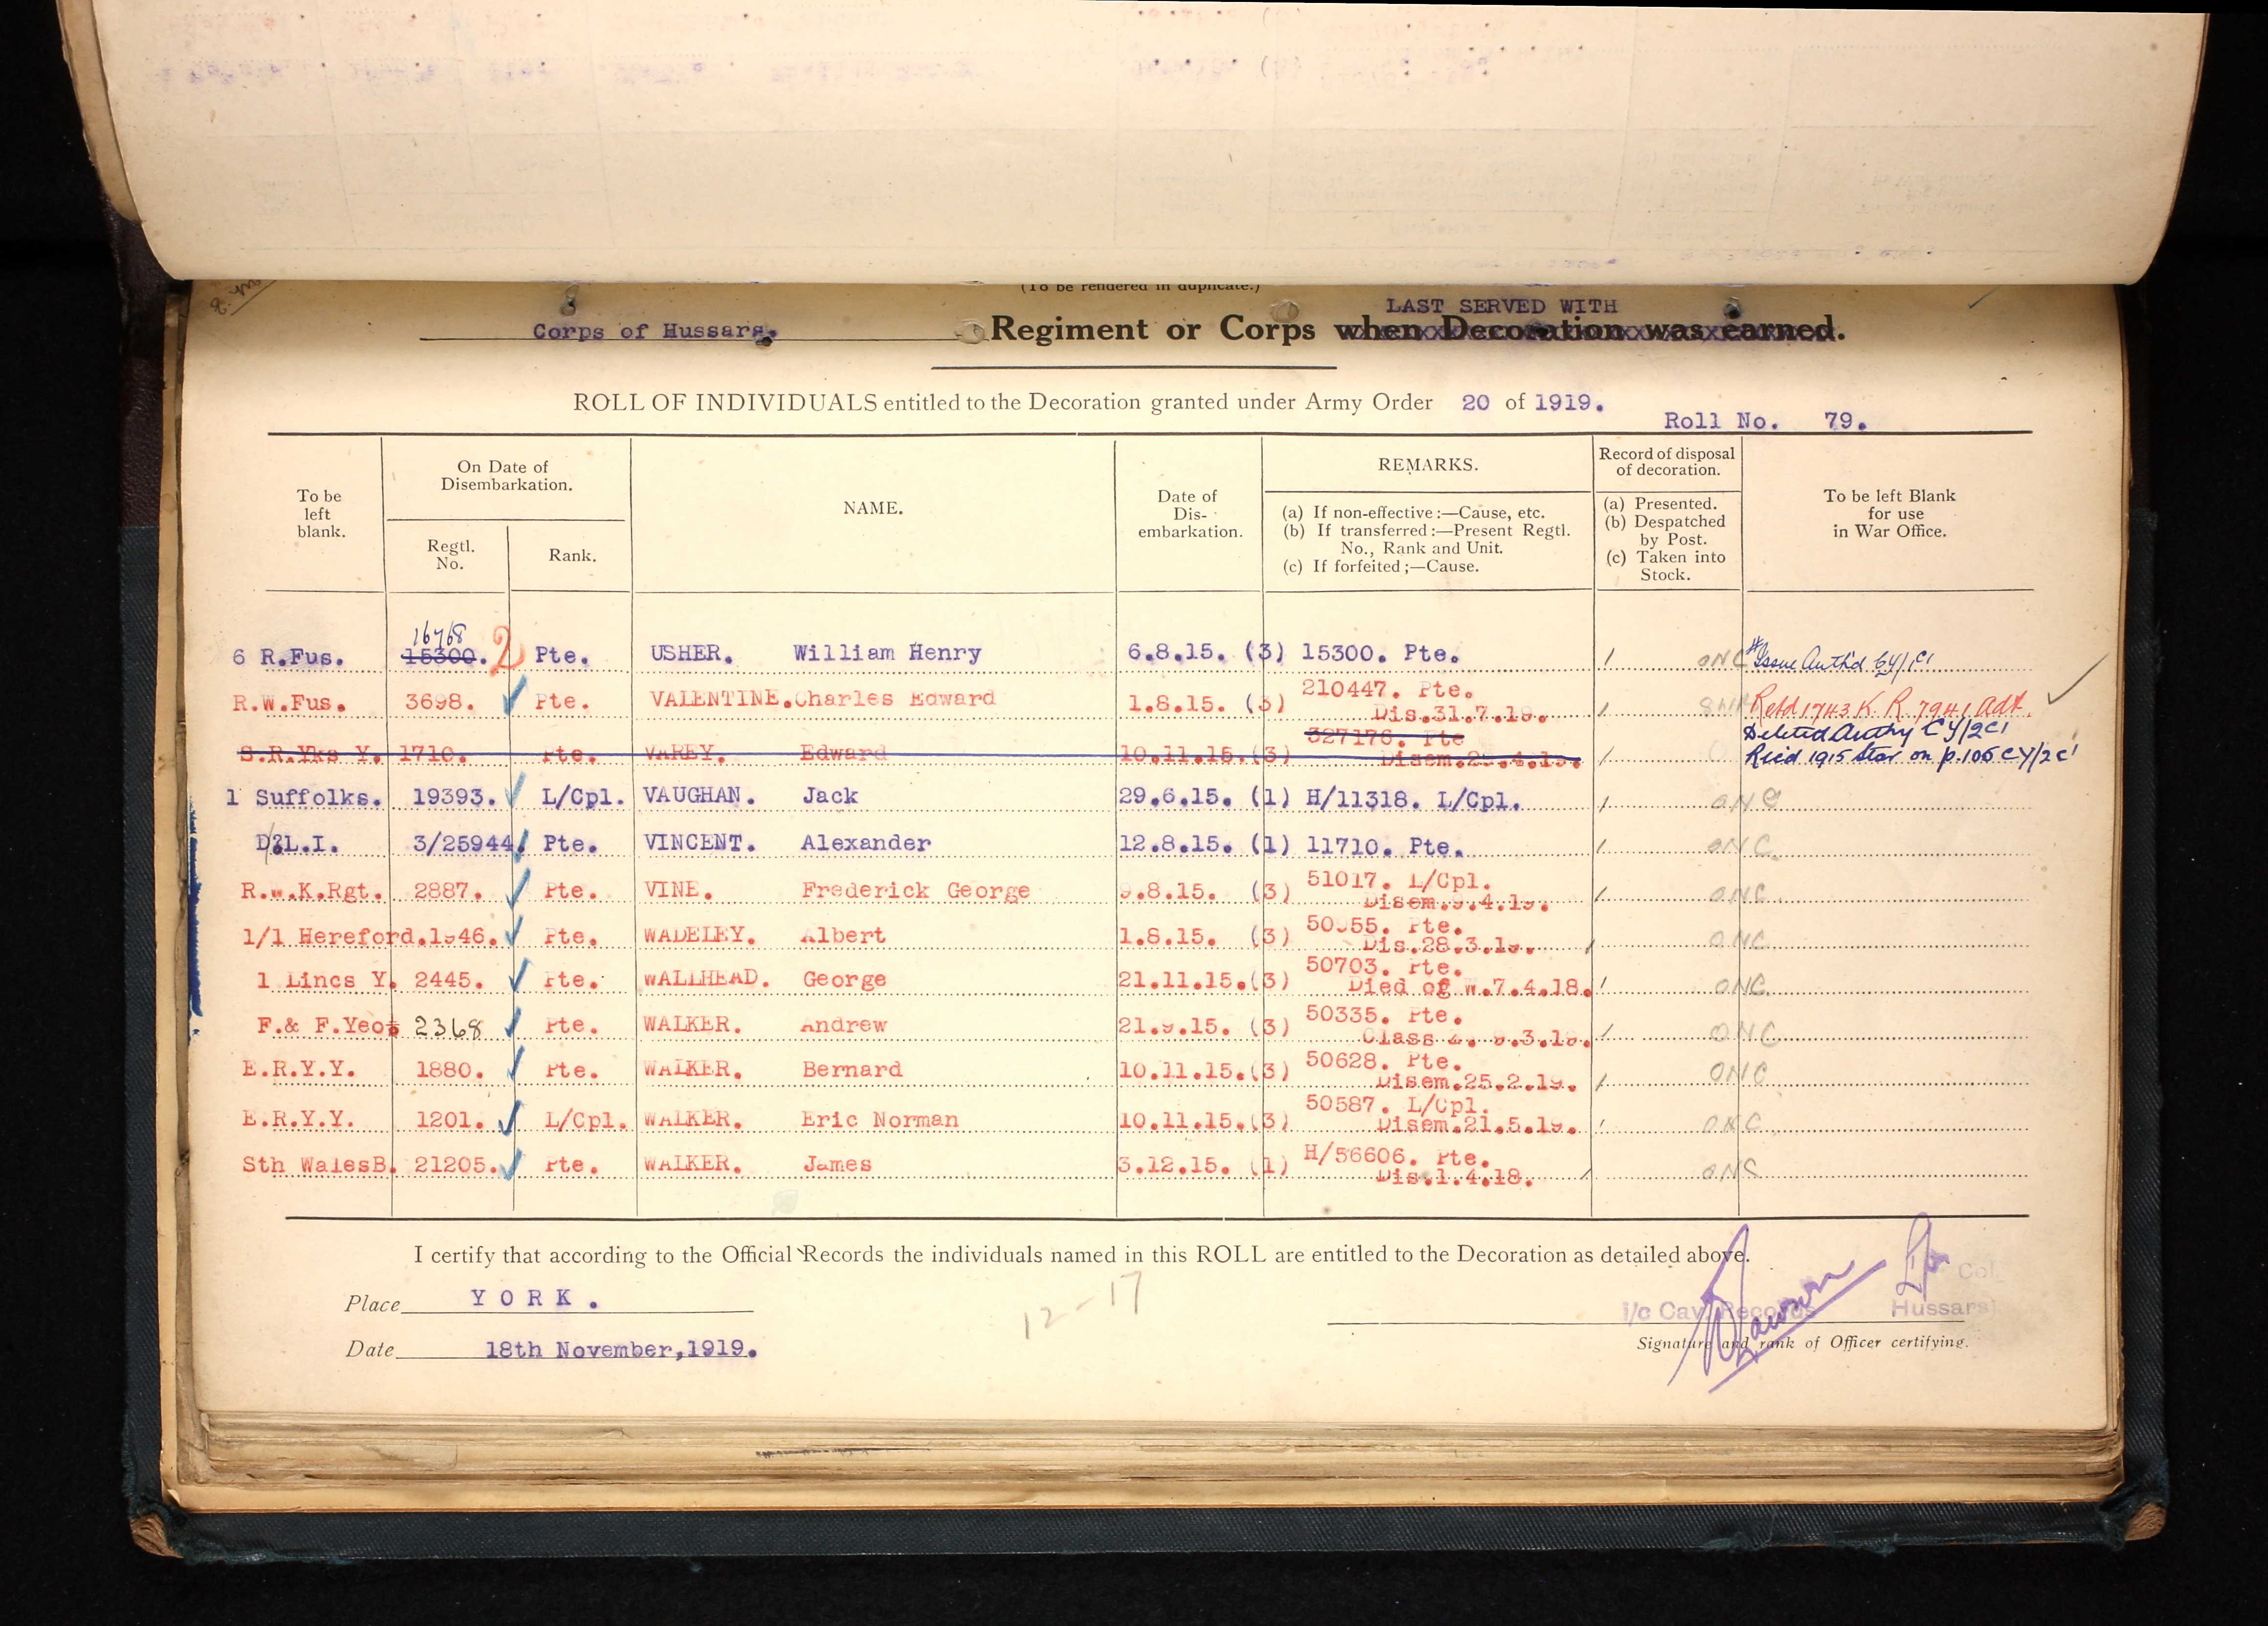 (To be rendered in duplicate.)
LAST SERVED WITH
Corps of Hussars. Regiment or Corps when Decoration was earned.
ROLL OF INDIVIDUALS entitled to the Decoration granted under Army Order 20 of 1919.
Roll No. 79.
To be left blank.
On Date of Disembarkation.
Regtl. No.
Rank.
NAME.
Date of Dis-embarkation.
REMARKS.
(a) If non-effective:—Cause, etc.
(b) If transferred:—Present Regtl. No., Rank and Unit.
(c) If forfeited;—Cause.
Record of disposal of decoration.
(a) Presented.
(b) Despatched by Post.
(c) Taken into Stock.
To be left Blank for use in War Office.
16768
6 R.Fus. 15300. 2 Pte. USHER. William Henry 6.8.15. (3) 15300. Pte. ONC Issue Auth'd CY/1C1
R.W.Fus. 3698. Pte. VALENTINE. Charles Edward 1.8.15. (3) 210447. Pte. Dis.31.7.19. Retd 1743 K.R. 7941 Adt.
S.R.Yks Y. 1710. Pte. VAREY. Edward 10.11.15.(3) 327176. Pte Disem.
Deleted Authy CY/2C1
Rec'd 1915 Star on p.106 CY/2C1
1 Suffolks. 19393. L/Cpl. VAUGHAN. Jack 29.6.15. (1) H/11318. L/Cpl. ONC
L.I. 3/25944. Pte. VINCENT. Alexander 12.8.15. (1) 11710. Pte. ONC.
R.W.K.Rgt. 2887. Pte. VINE. Frederick George 9.8.15. (3) 51017. L/Cpl. Disem.9.4.19. ONC.
1/1 Hereford.1946. Pte. WADELEY. Albert 1.8.15. (3) Pte. Dis.28.3.19. ONC
1 Lincs Y. 2445. Pte. WALLHEAD. George 21.11.15.(3) 50703. Pte. Died of W.7.4.18. ONC
F.& F.Yeo 2368 Pte. WALKER. Andrew 21.9.15. (3) 50335. Pte. Class ONC
E.R.Y.Y. 1880. Pte. WALKER. Bernard 10.11.15.(3) 50628. Pte. Disem.25.2.19. ONC
E.R.Y.Y. 1201. L/Cpl. WALKER. Eric Norman 10.11.15.(3) 50587. L/Cpl. Disem.21.5.19. ONC
Sth WalesB. 21205. Pte. WALKER. James 3.12.15. (1) H/56606. Pte. Dis.1.4.18. ONC
I certify that according to the Official Records the individuals named in this ROLL are entitled to the Decoration as detailed above.
Place YORK.
12-17
Col.
i/c Cav. Records Hussars
Date 18th November,1919.
Signature and rank of Officer certifying.